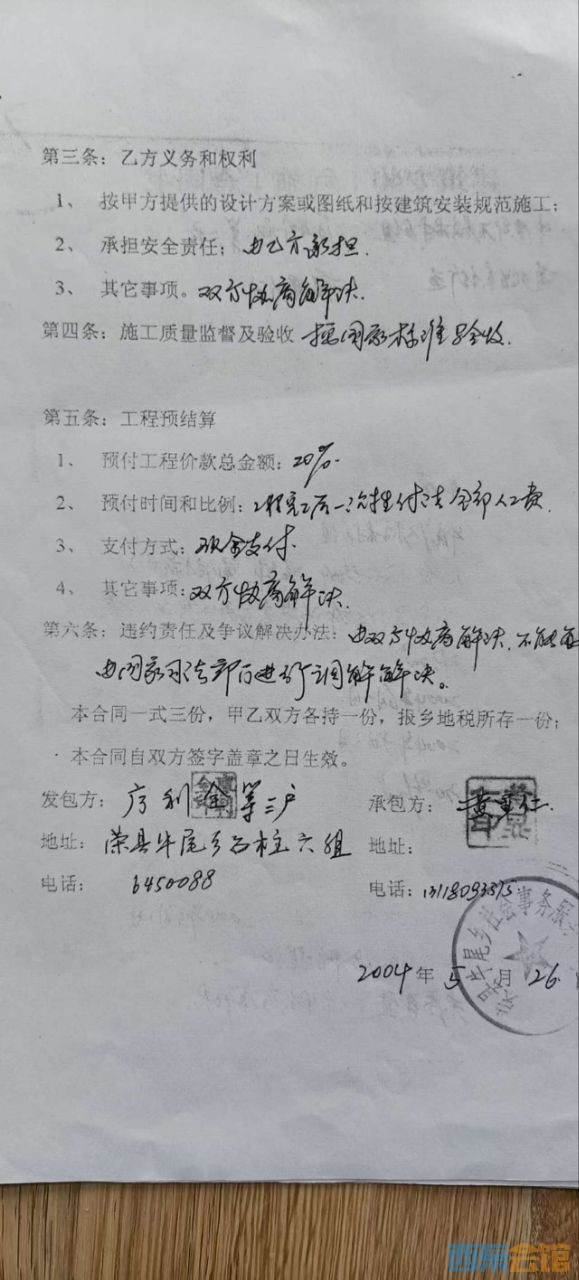 第三条：乙方义务和权利
1、 按甲方提供的设计方案或图纸和按建筑安装规范施工；
2、 承担安全责任；由乙方承担.
3、 其它事项。双方协商解决.
第四条：施工质量监督及验收 按国家标准验收.
第五条：工程预结算
1、 预付工程价款总金额：20%.
2、 预付时间和比例：工程完工后一次性付清全部人工费.
3、 支付方式：现金支付.
4、 其它事项：双方协商解决.
第六条：违约责任及争议解决办法：由双方协商解决.不能
由国家司法部门进行调解解决。
本合同一式三份，甲乙双方各持一份，报乡地税所存一份；
本合同自双方签字盖章之日生效。
发包方： 利金等三户 承包方：
地址：荣县牛尾乡石柱六组 地址：
电话： 6450088 电话：
2004年5月26
牛尾乡社会事务服
西秦会馆